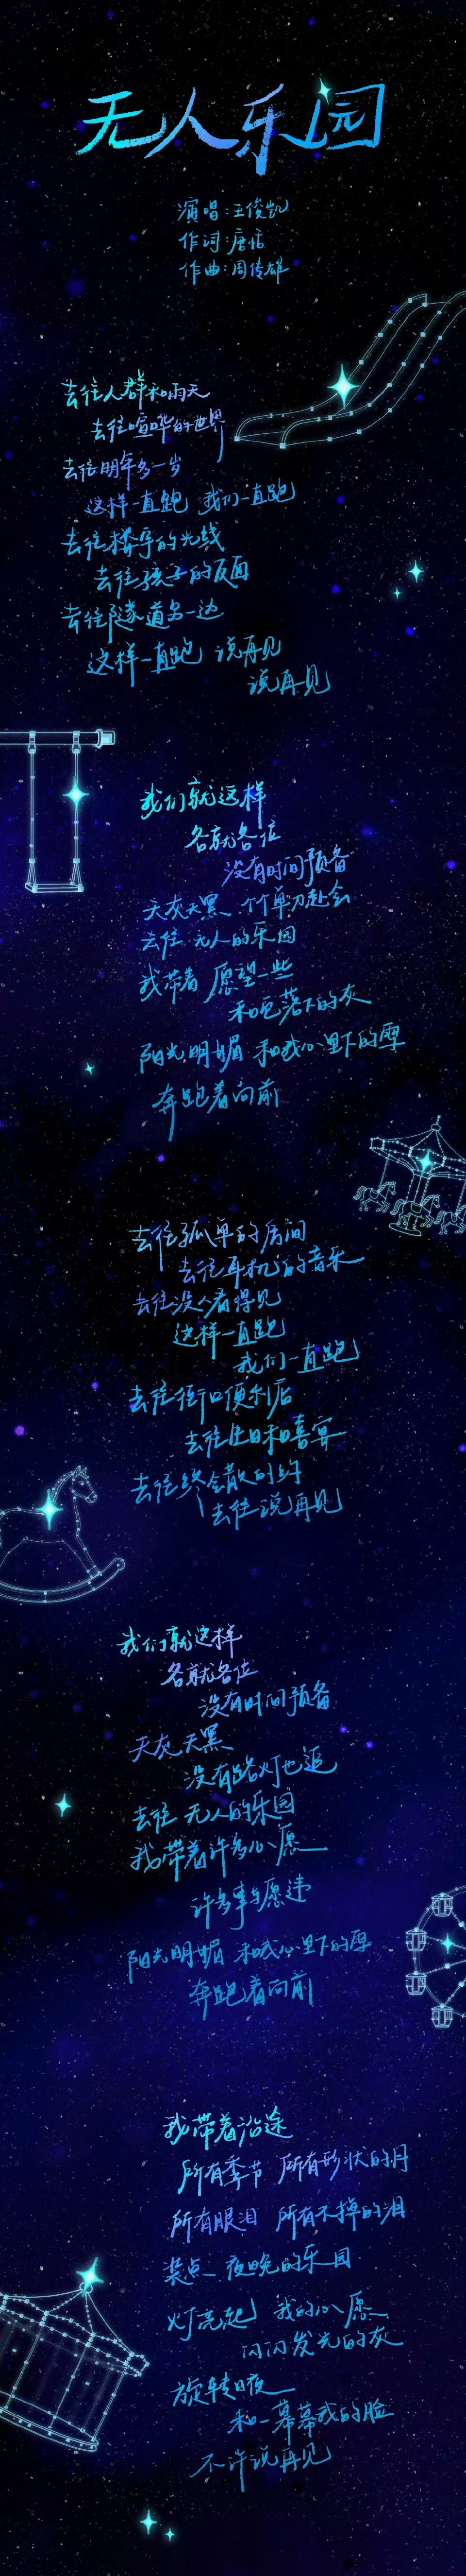 无人乐园
演唱:王俊凯
作词:唐恬
作曲:周传雄
去往人群和雨天
去往喧哗的世界
去往明年多一岁
这样一直跑 我们一直跑
去往楼宇的光线
去往孩子的反面
去往隧道另一边
这样一直跑 说再见
说再见
我们就这样
各就各位
没有时间预备
天灰天黑 个个单刀赴会
去往 无人的乐园
我带着 愿望一些
和吃落下的灰
阳光明媚 和我心里下的雪
奔跑着向前
去往孤单的房间
去往耳机的音乐
去往没人看得见
这样一直跑
我们一直跑
去往街口便利店
去往生日和喜宴
去往终会散的约
去往说再见
我们就这样
各就各位
没有时间预备
天灰天黑
没有路灯也追
去往 无人的乐园
我带着许多心愿
许多事与愿违
阳光明媚 和我心里下的雪
奔跑着向前
我带着沿途
所有季节 所有形状的月
所有眼泪 所有不掉的泪
装点 夜晚的乐园
灯亮起 我的心愿
闪闪发光的灰
旋转日夜
和一幕幕我的脸
不许说再见